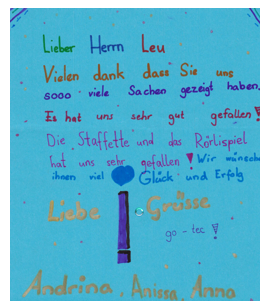 Lieber Herrn Leu
Vielen dank dass Sie uns
sooo viele Sachen gezeigt haben.
Es hat uns sehr gut gefallen!
Die Staffette und das Rörlispiel
hat uns sehr gefallen! Wir wünschen
ihnen viel Glück und Erfolg
Liebe Grüsse
go-tec!
Andrina, Anissa, Anna